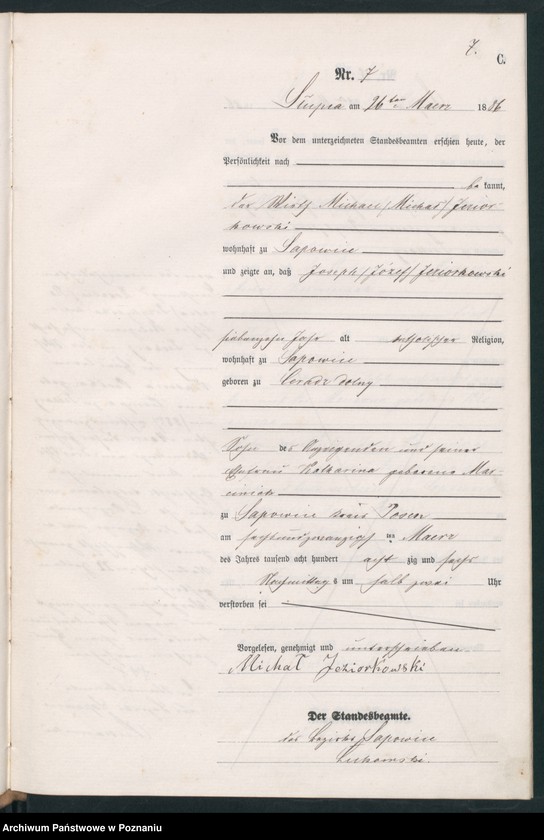 7.
C.
Nr. 7
Słupia am 26ten Maerz 1886
Vor dem unterzeichneten Standesbeamten erschien heute, der
Persönlichkeit nach
be kannt,
der Wirth Michael /Michał/ Jezior-
kowski
wohnhaft zu Sapowice
und zeigte an, daß Joseph /Józef/ Jeziorkowski
siebenzehn Jahr alt katholischer Religion,
wohnhaft zu Sapowice
geboren zu Ceradz dolny
Sohn des Anzeigenden und seiner
Ehefrau Katharina geborene Mar-
ciniak
zu Sapowice Kreis Posen
am sechsundzwanzigsten Maerz
des Jahres tausend acht hundert acht zig und sechs
Nachmittags um halb zwei Uhr
verstorben sei
Vorgelesen, genehmigt und unterschrieben
Michał Jeziorkowski
Der Standesbeamte.
des Bezirks Sapowice
Archiwum Państwowe w Poznaniu